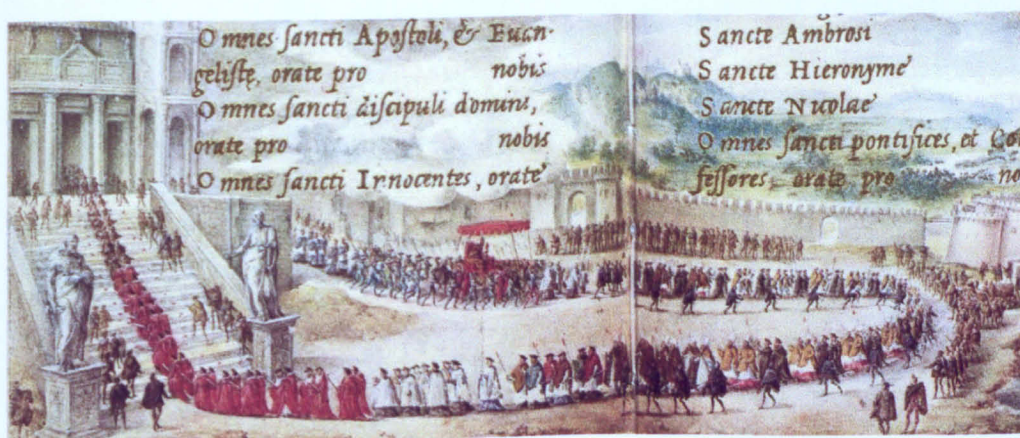 Omnes sancti Apostoli, & Euan-
gelistę, orate pro nobis
Omnes sancti discipuli domini,
orate pro nobis
Omnes sancti Innocentes, orate
Sancte Ambrosi
Sancte Hieronyme
Sancte Nicolae
Omnes sancti pontifices, et Co
fessores, orate pro no